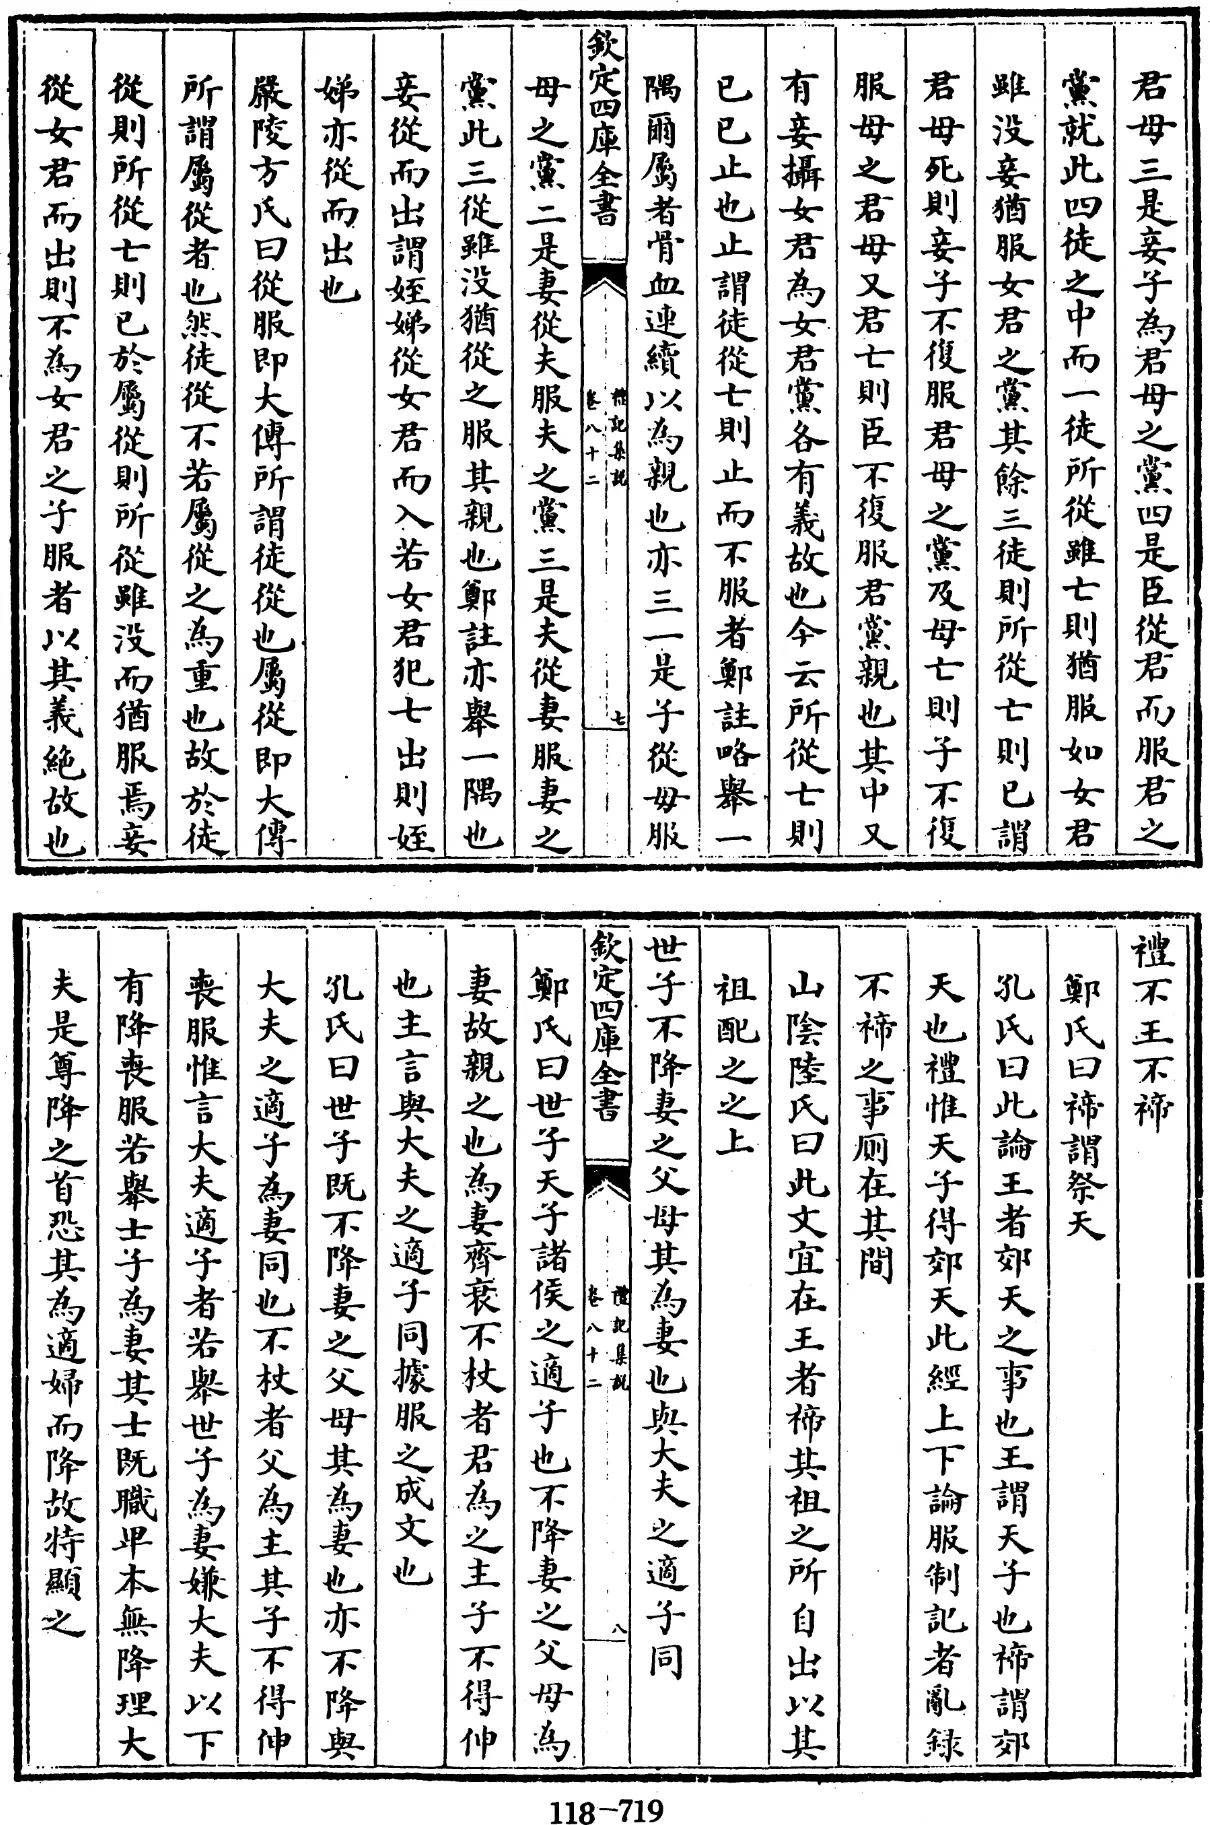 君母三是妾子為君母之黨四是臣從君而服君之
黨就此四徒之中而一徒所從雖亡則猶服如女君
雖没妾猶服女君之黨其餘三徒則所從亡則已謂
君母死則妾子不復服君母之黨及母亡則子不復
服母之君母又君亡則臣不復服君黨親也其中又
有妾攝女君為女君黨各有義故也今云所從亡則
已已止也止謂徒從亡則止而不服者鄭註略舉一
隅爾屬者骨血連續以為親也亦三一是子從母服
欽定四庫全書
禮記集説
卷八十二
七
母之黨二是妻從夫服夫之黨三是夫從妻服妻之
黨此三從雖没猶從之服其親也鄭註亦舉一隅也
妾從而出謂姪娣從女君而入若女君犯七出則姪
娣亦從而出也
嚴陵方氏曰從服即大傳所謂徒從也屬從即大傳
所謂屬從者也然徒從不若屬從之為重也故於徒
從則所從亡則已於屬從則所從雖没而猶服焉妾
從女君而出則不為女君之子服者以其義絶故也
禮不王不禘
鄭氏曰禘謂祭天
孔氏曰此論王者郊天之事也王謂天子也禘謂郊
天也禮惟天子得郊天此經上下論服制記者亂録
不禘之事厠在其間
山陰陸氏曰此文宜在王者禘其祖之所自出以其
祖配之之上
世子不降妻之父母其為妻也與大夫之適子同
欽定四庫全書
禮記集説
卷八十二
八
鄭氏曰世子天子諸侯之適子也不降妻之父母為
妻故親之也為妻齊衰不杖者君為之主子不得伸
也主言與大夫之適子同據服之成文也
孔氏曰世子既不降妻之父母其為妻也亦不降與
大夫之適子為妻同也不杖者父為主其子不得伸
喪服惟言大夫適子者若舉世子為妻嫌大夫以下
有降喪服若舉士子為妻其士既職卑本無降理大
夫是尊降之首恐其為適婦而降故特顯之
118-719